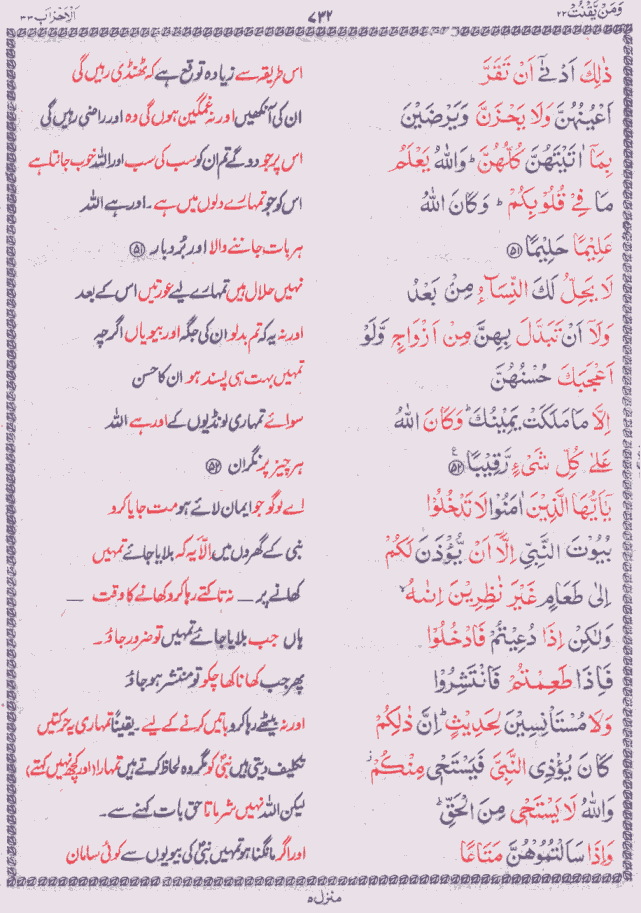 وَمَنْ يَّقْنُتْ ٢٢ ٧٣٢ اَلْاَحْزَاب ٣٣
ذٰلِكَ اَدْنٰٓى اَنْ تَقَرَّ اس طریقہ سے زیادہ توقع ہے کہ ٹھنڈی رہیں گی
اَعْيُنُهُنَّ وَلَا يَحْزَنَّ وَيَرْضَيْنَ ان کی آنکھیں اور نہ غمگین ہوں گی وہ اور راضی رہیں گی
بِمَآ اٰتَيْتَهُنَّ كُلُّهُنَّ ؕ وَاللّٰهُ يَعْلَمُ اس پر جو دو گے تم ان کو سب کی سب اور اللہ خوب جانتا ہے
مَا فِيْ قُلُوْبِكُمْ ؕ وَكَانَ اللّٰهُ اس کو جو تمہارے دلوں میں ہے۔ اور ہے اللہ
عَلِيْمًا حَلِيْمًا ﴿٥١﴾ ہر بات جاننے والا اور بُردبار ﴿٥١﴾
لَا يَحِلُّ لَكَ النِّسَآءُ مِنْۢ بَعْدُ نہیں حلال ہیں تمہارے لیے عورتیں اس کے بعد
وَلَآ اَنْ تَبَدَّلَ بِهِنَّ مِنْ اَزْوَاجٍ وَّلَوْ اور نہ یہ کہ تم بدلو ان کی جگہ اور بیویاں اگرچہ
اَعْجَبَكَ حُسْنُهُنَّ تمہیں بہت ہی پسند ہو ان کا حسن
اِلَّا مَا مَلَكَتْ يَمِيْنُكَ ؕ وَكَانَ اللّٰهُ سوائے تمہاری لونڈیوں کے اور ہے اللہ
عَلٰى كُلِّ شَيْءٍ رَّقِيْبًا ﴿٥٢﴾ ع ہر چیز پر نگران ﴿٥٢﴾
يٰٓاَيُّهَا الَّذِيْنَ اٰمَنُوْا لَا تَدْخُلُوْا اے لوگو جو ایمان لائے ہو مت جایا کرو
بُيُوْتَ النَّبِيِّ اِلَّآ اَنْ يُّؤْذَنَ لَكُمْ نبی کے گھروں میں الّا یہ کہ بلایا جائے تمہیں
اِلٰى طَعَامٍ غَيْرَ نٰظِرِيْنَ اِنٰىهُ ۙ کھانے پر — نہ تاکتے رہا کرو کھانے کا وقت —
وَلٰكِنْ اِذَا دُعِيْتُمْ فَادْخُلُوْا ہاں جب بلایا جائے تمہیں تو ضرور جاؤ۔
فَاِذَا طَعِمْتُمْ فَانْتَشِرُوْا پھر جب کھانا کھا چکو تو منتشر ہو جاؤ
وَلَا مُسْتَاْنِسِيْنَ لِحَدِيْثٍ ؕ اِنَّ ذٰلِكُمْ اور نہ بیٹھے رہا کرو باتیں کرنے کے لیے۔ یقیناً تمہاری یہ حرکتیں
كَانَ يُؤْذِى النَّبِيَّ فَيَسْتَحْيٖ مِنْكُمْ ز تکلیف دیتی ہیں نبیؐ کو مگر وہ لحاظ کرتے ہیں تمہارا (اور کچھ نہیں کہتے)
وَاللّٰهُ لَا يَسْتَحْيٖ مِنَ الْحَقِّ ؕ لیکن اللہ نہیں شرماتا حق بات کہنے سے۔
وَاِذَا سَاَلْتُمُوْهُنَّ مَتَاعًا اور اگر مانگنا ہو تمہیں نبیؐ کی بیویوں سے کوئی سامان
منزل ٥